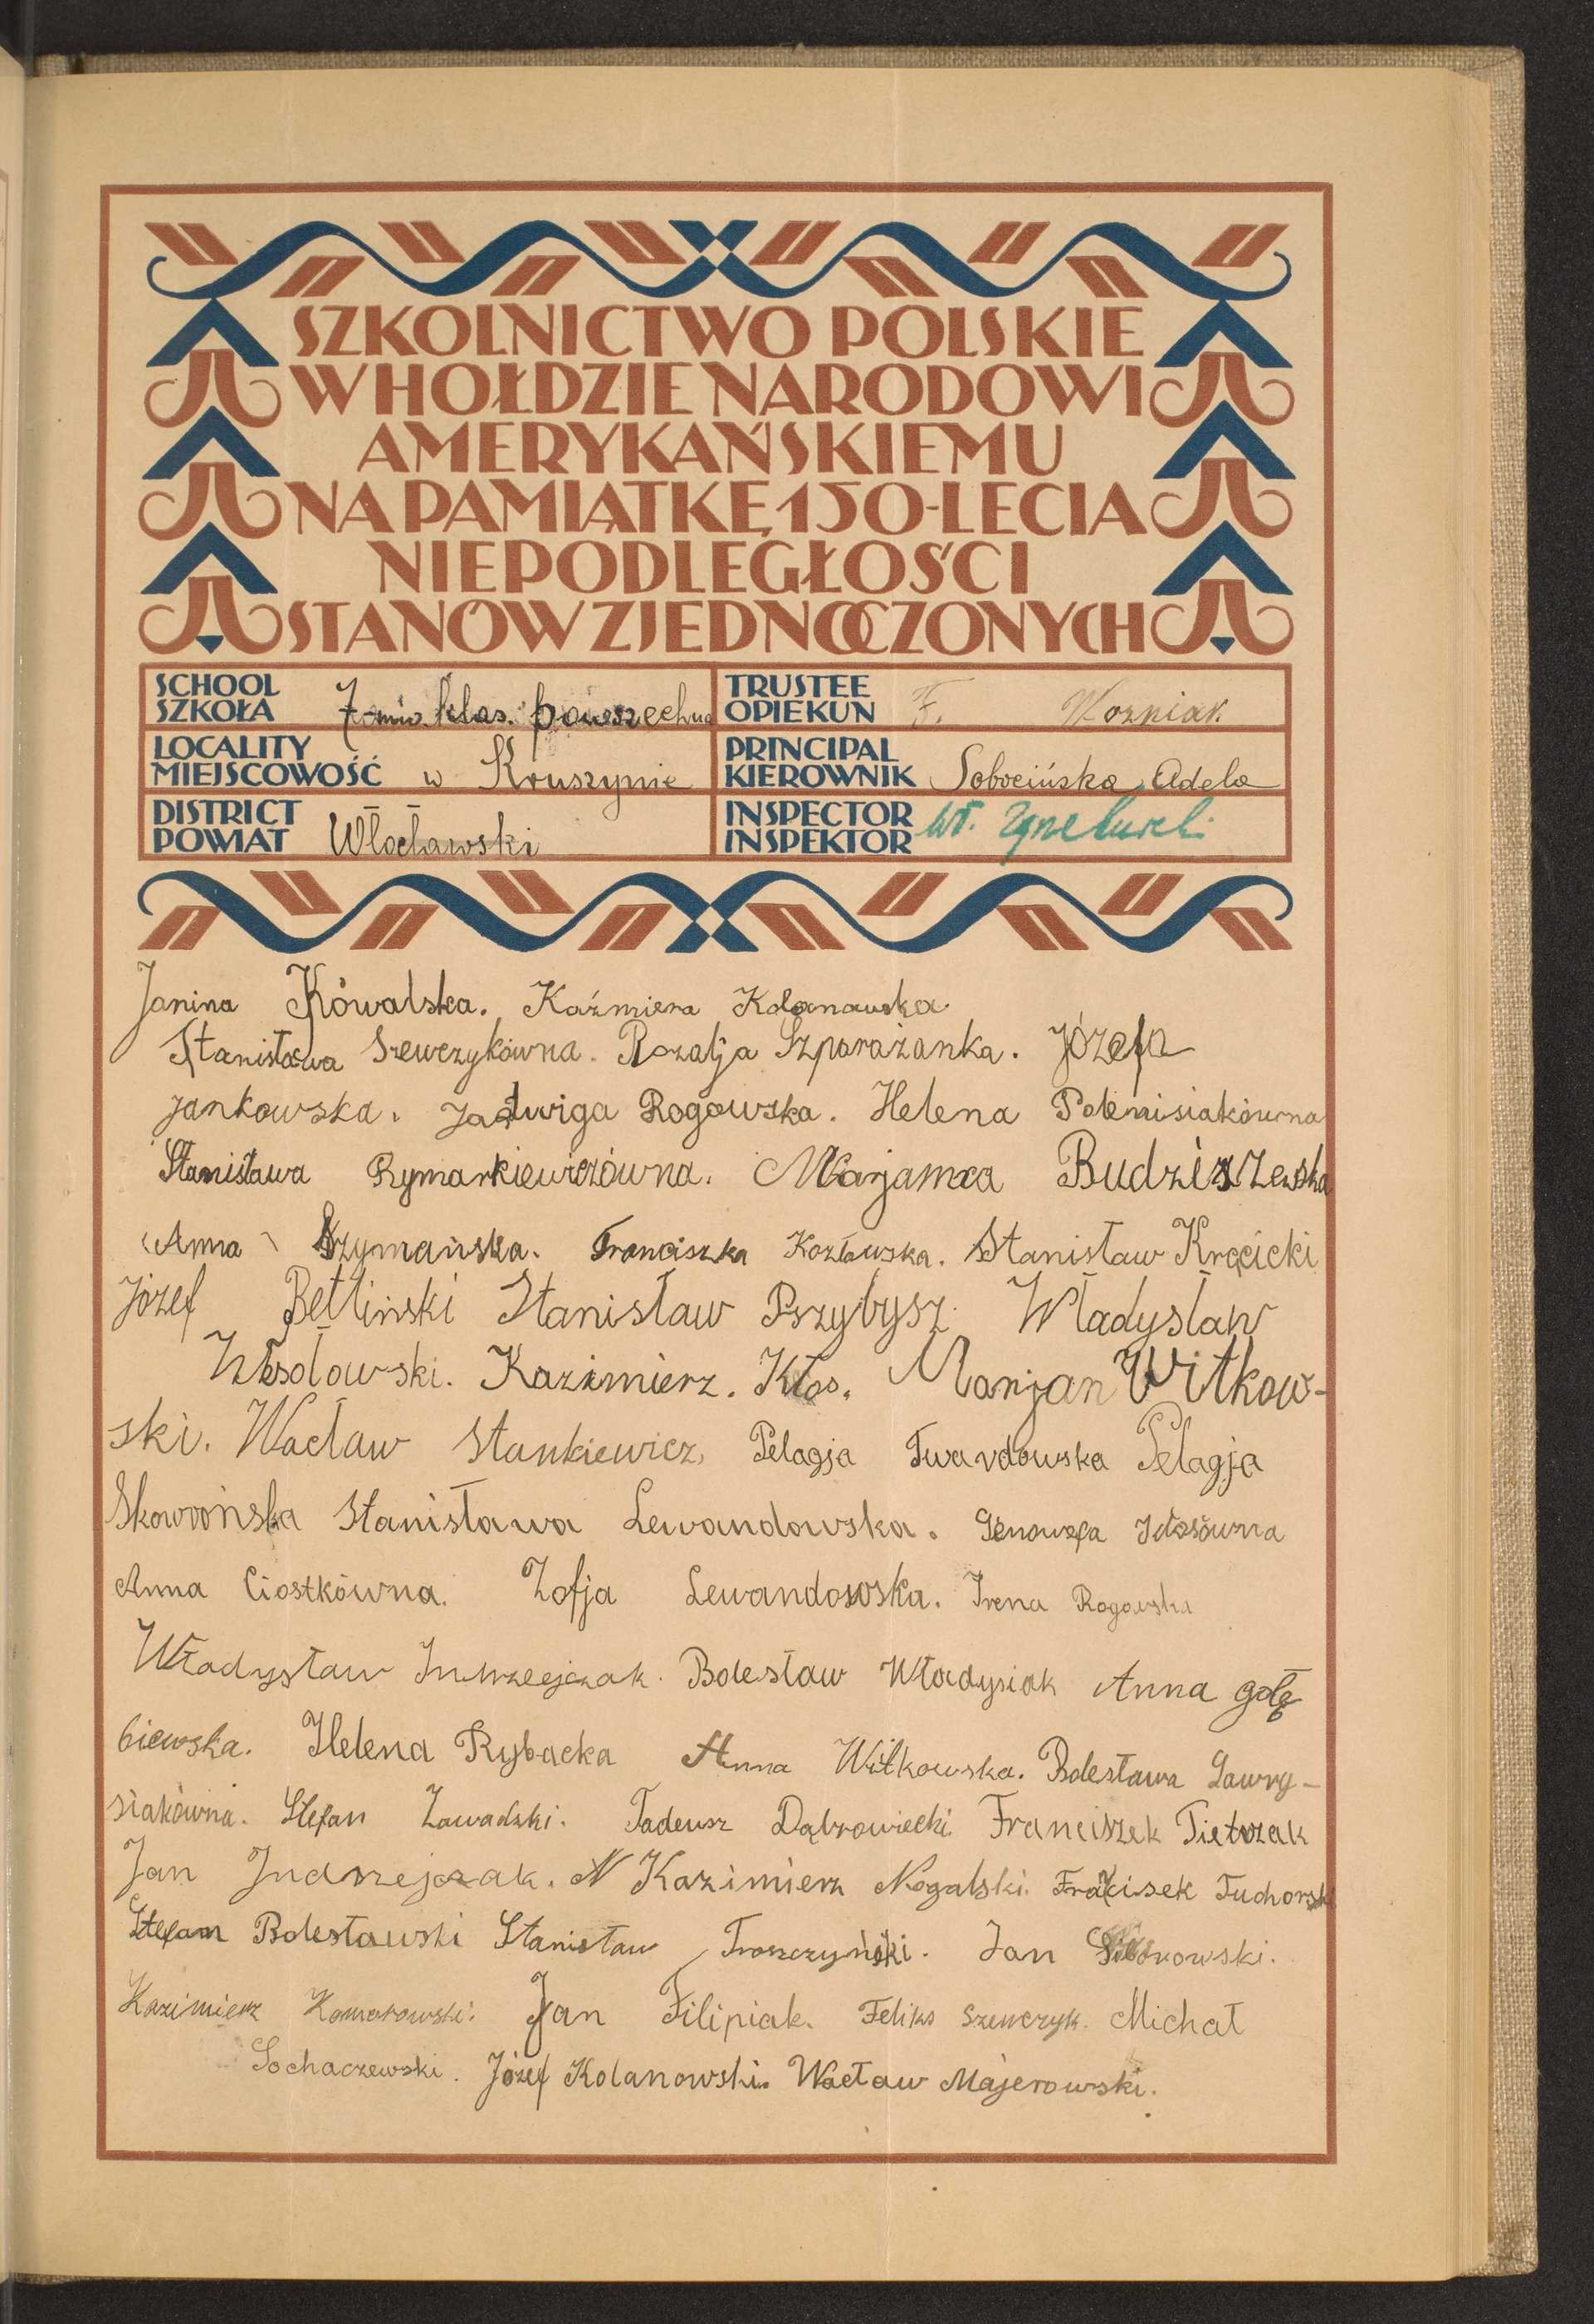 SZKOLNICTWO POLSKIE
W HOŁDZIE NARODOWI
AMERYKAŃSKIEMU
NA PAMIĄTKĘ 150-LECIA
NIEPODLEGŁOŚCI
STANÓW ZJEDNOCZONYCH
SCHOOL
SZKOŁA 7-mio klas. powszechna
TRUSTEE
OPIEKUN F. Wozniak
LOCALITY
MIEJSCOWOŚĆ w Kruszynie
PRINCIPAL
KIEROWNIK Sobocińska Adela
DISTRICT
POWIAT Włocławski
INSPECTOR
INSPEKTOR Wł.
Janina Kowalska. Kaźmiera Kolanowska
Stanisława Szewczykówna. Rozalja Szparażanka. Józefa
Jankowska. Jadwiga Rogowska. Helena
Stanisława Rymarkiewiczówna. Marjanna Budziszewska
Anna Szymańska. Franciszka Kozłowska. Stanisław Kręcicki
Józef Betliński Stanisław Przybysz. Władysław
Wesołowski. Kazimierz. Kłos. Marjan Witkow-
ski. Wacław Stankiewicz, Pelagja Twardowska Pelagja
Skowrońska Stanisława Lewandowska. Genowefa
Anna Ciostkówna. Zofja Lewandowska. Irena Rogowska
Władysław Jndrzejczak. Bolesław Władysiak Anna gołę
biewska. Helena Rybacka Anna Witkowska. Bolesława Gawry-
siakówna. Stefan Zawadzki. Tadeusz Dąbrowiecki Franciszek Pietrzak
Jan Jndrzejczak. N Kazimierz Nogalski. Fracisek Tuchorski
Stefan Bolesławski Stanisław Troszczyński. Jan
Kazimierz Komorowski. Jan Filipiak. Feliks Szewczyk. Michał
Sochaczewski. Józef Kolanowski. Wacław Majerowski.